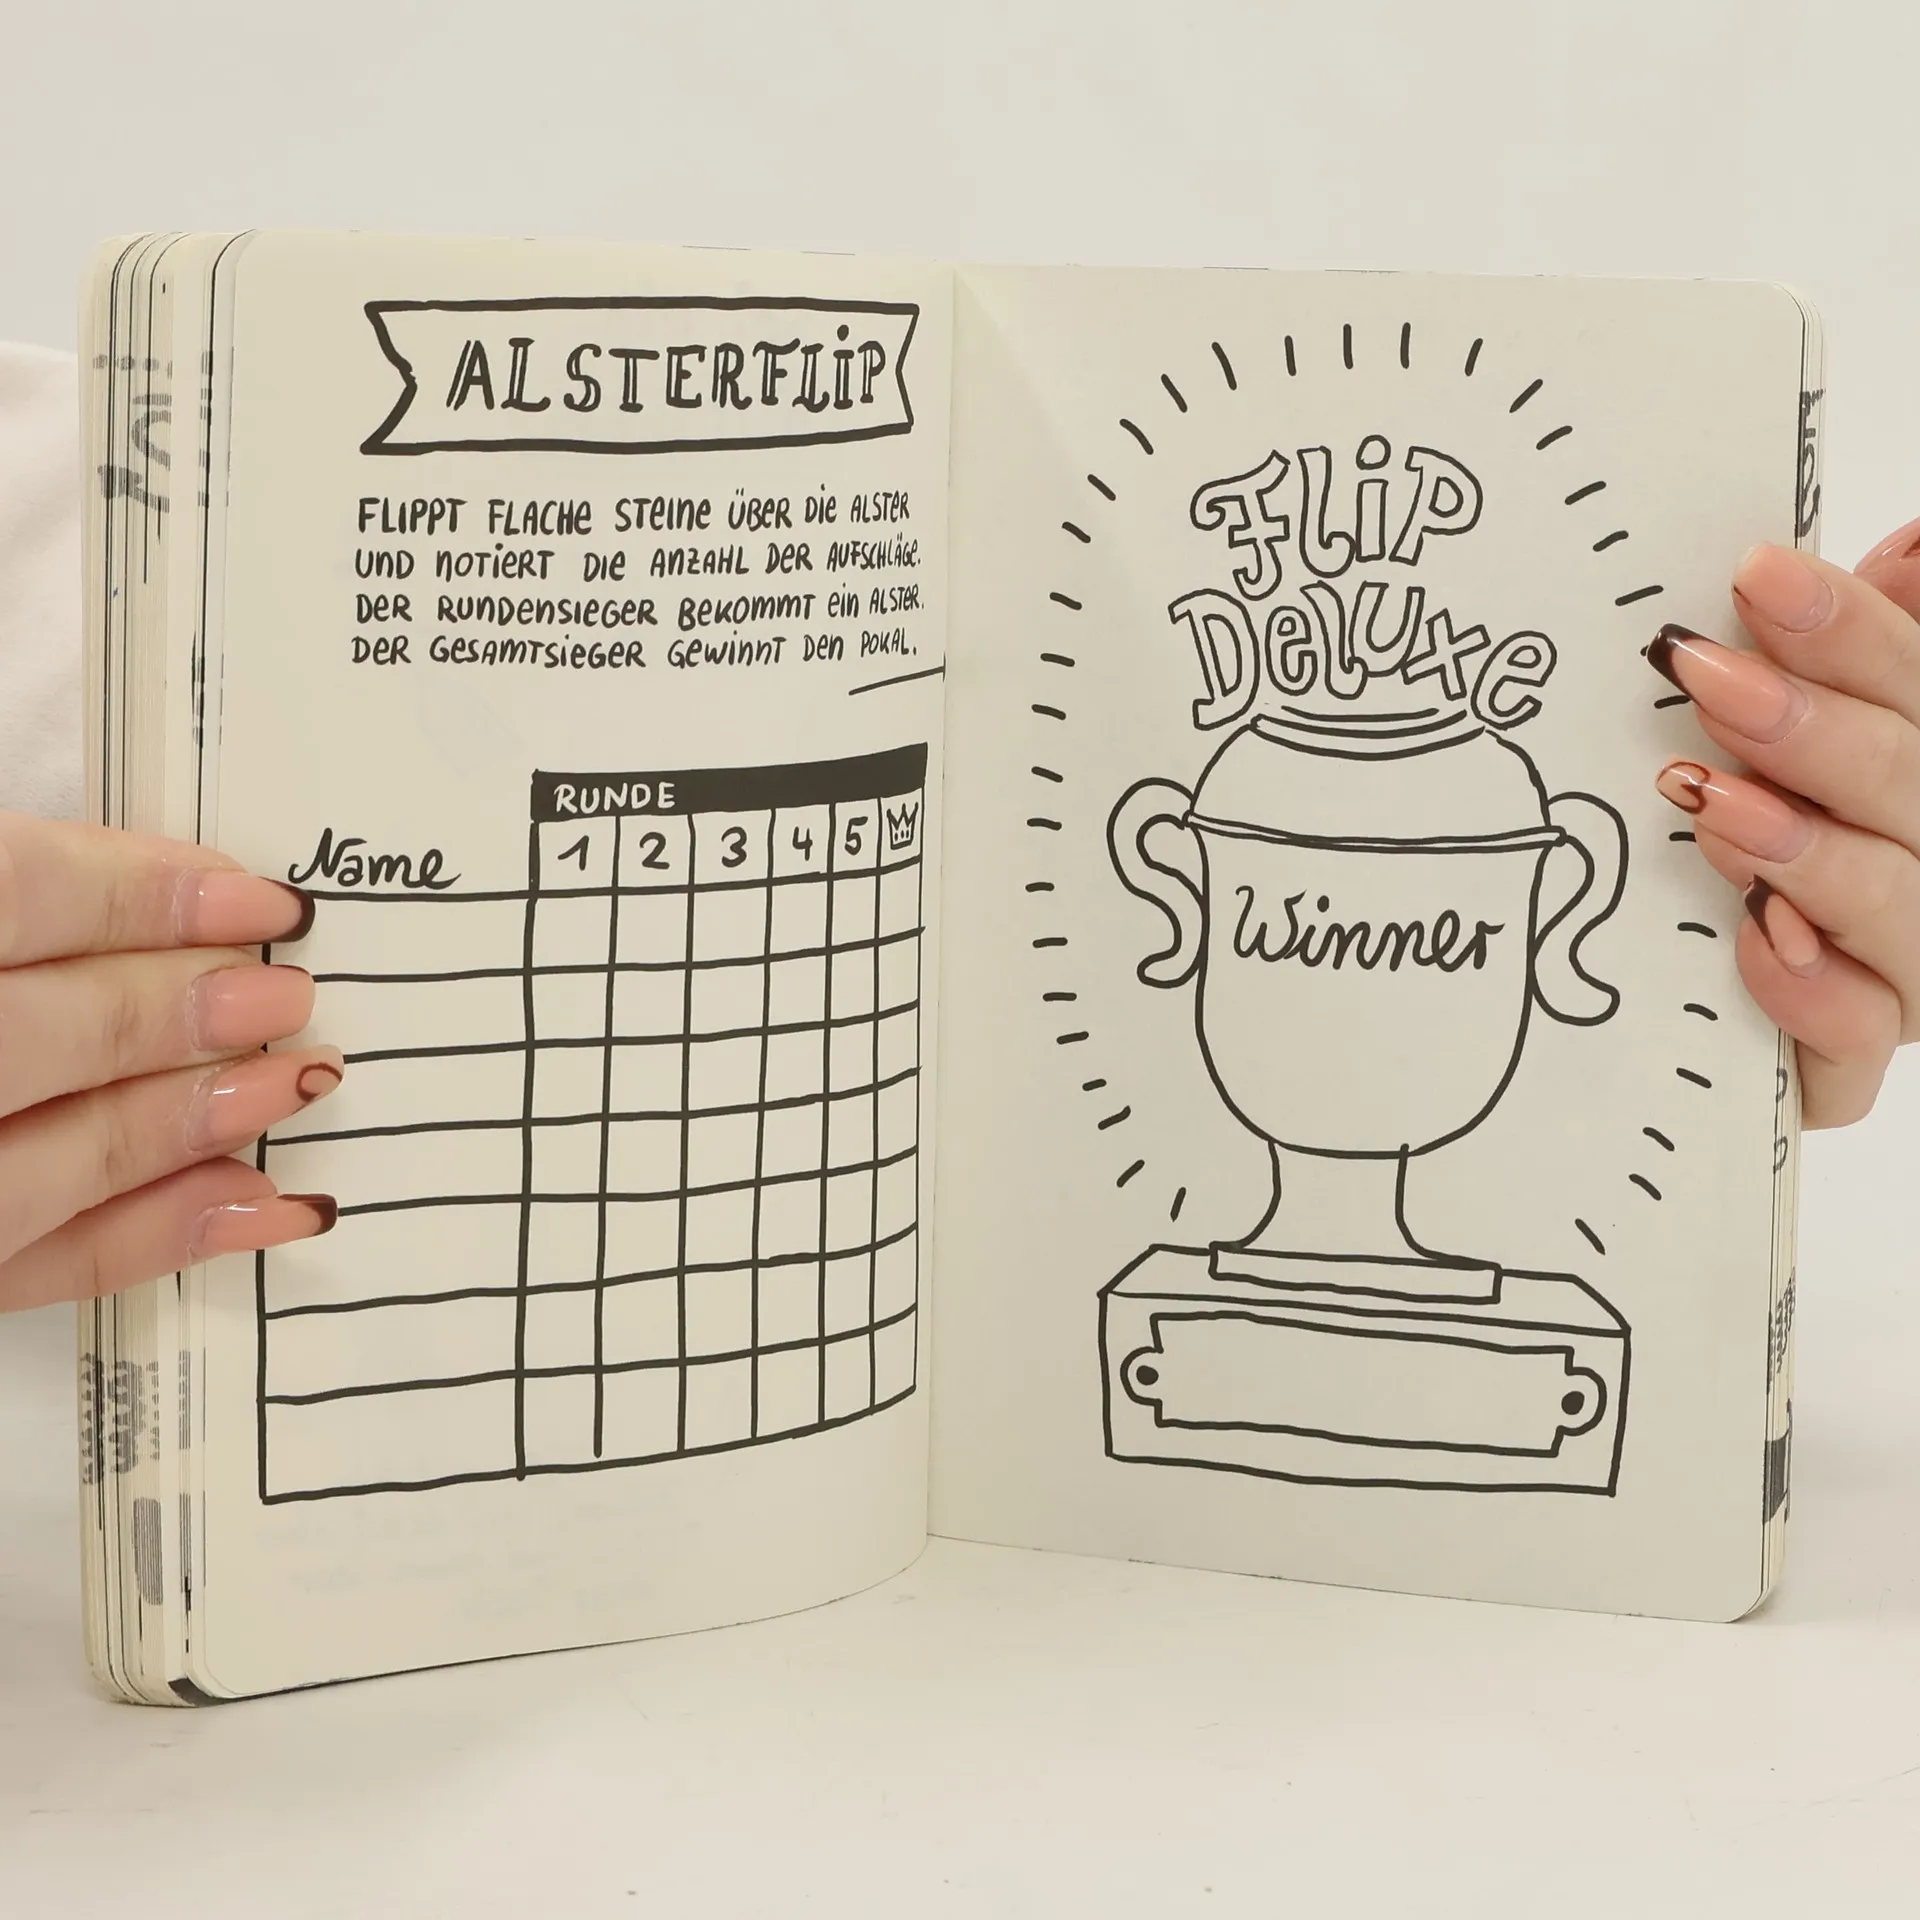 ALSTERFLIP
FLIPPT FLACHE STEINE ÜBER DIE ALSTER
UND NOTIERT DIE ANZAHL DER AUFSCHLÄGE.
DER RUNDENSIEGER BEKOMMT EIN ALSTER.
DER GESAMTSIEGER GEWINNT DEN POKAL.
RUNDE
Name 1 2 3 4 5
Flip
Deluxe
Winner